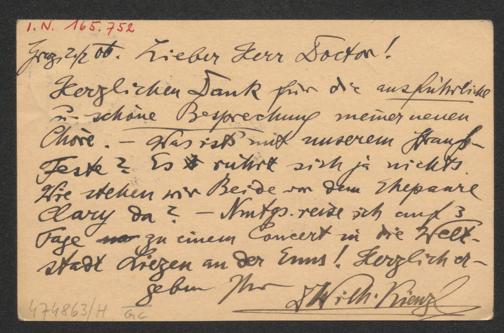 I.N. 165.752
Graz, 2/2 06. Lieber Herr Doctor!
Herzlichen Dank für die ausführliche
u. schöne Besprechung meiner neuen
Chöre. – Was ist's mit unserem
Feste? Es rührt sich ja nichts.
Wie stehen wir Beide vor dem Ehepaare
Clary da? – Nmtgs. reise ich auf 3
Tage zu einem Concert in die Welt-
stadt Liezen an der Enns! Herzlich er-
geben Ihr
Dr Wilh. Kienzl
474863/H GG